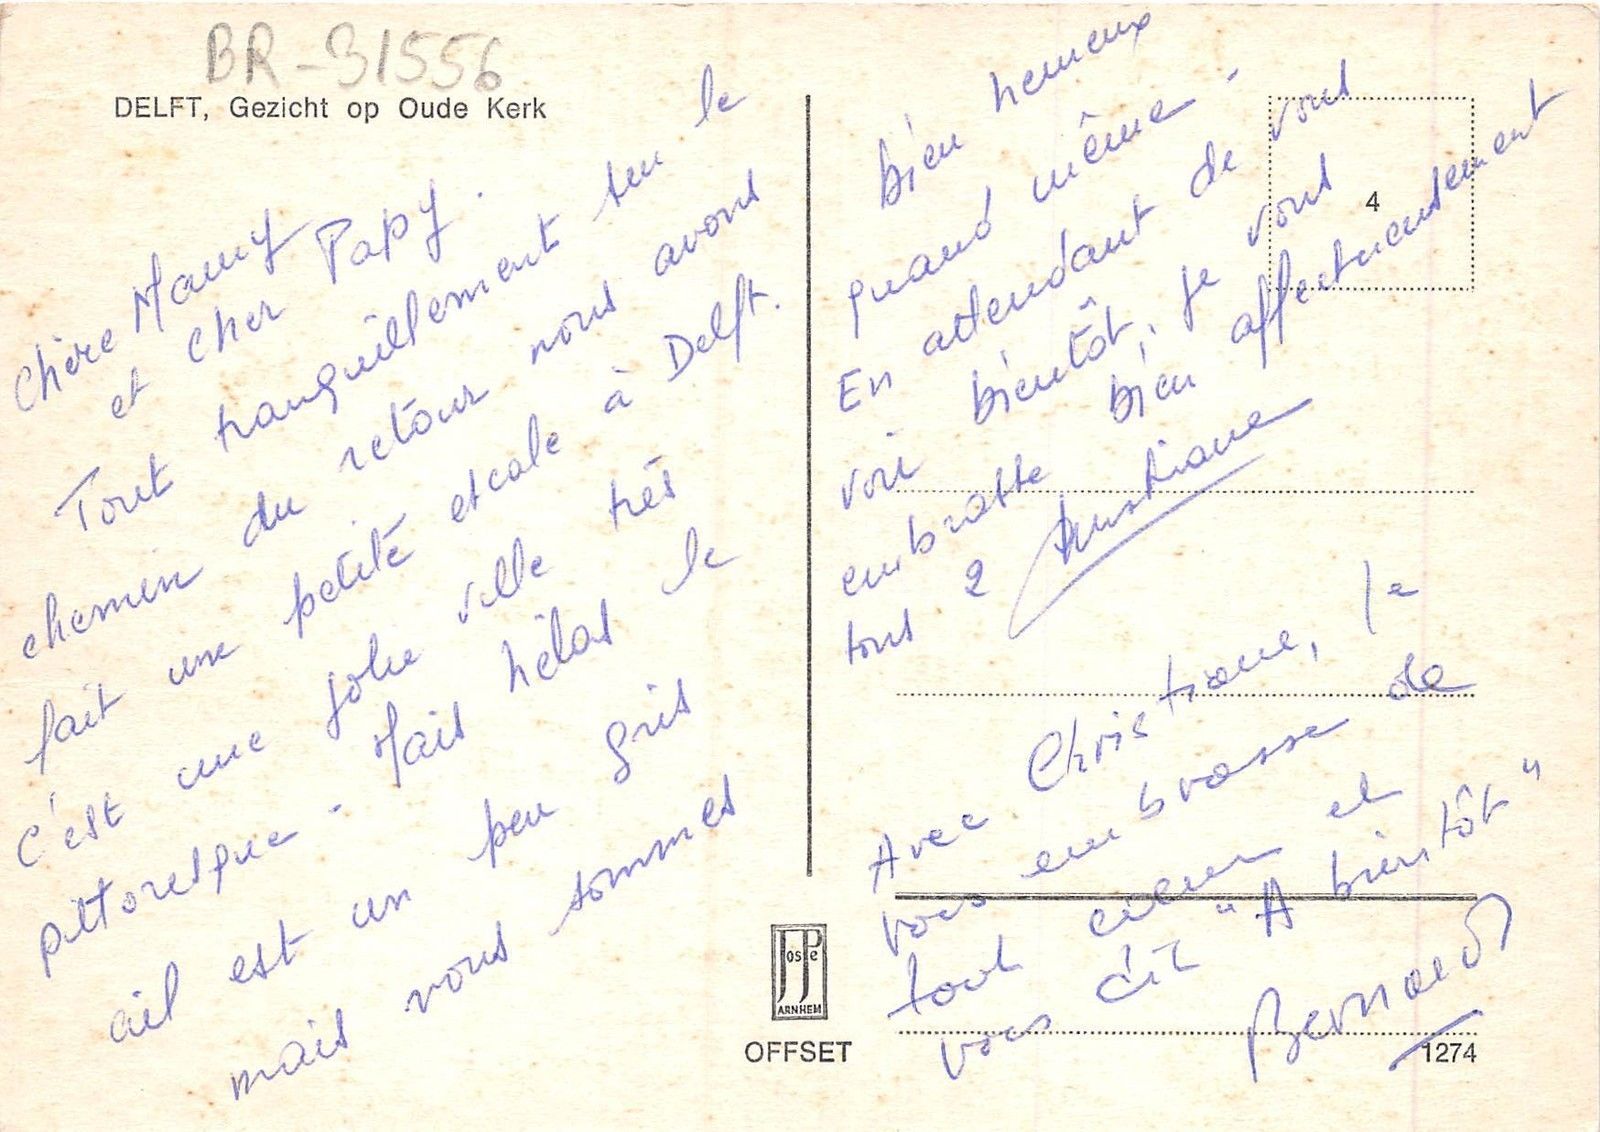 BR-31556
DELFT, Gezicht op Oude Kerk
Chère Mamy
et cher Papy.
Tout tranquillement sur le
chemin du retour nous avons
fait une petite escale à Delft.
C'est une jolie ville très
pittoresque - Mais hélas le
ciel est un peu gris
mais nous sommes
bien heureux
quand même -
En attendant de vous
voir bientôt, je vous
embrasse bien affectueusement
tous 2 Christiane
Avec Christiane, je
vous embrasse de
tout coeur et
vous dit "A bientôt"
Bernard
4
JosPe
ARNHEM
OFFSET
1274